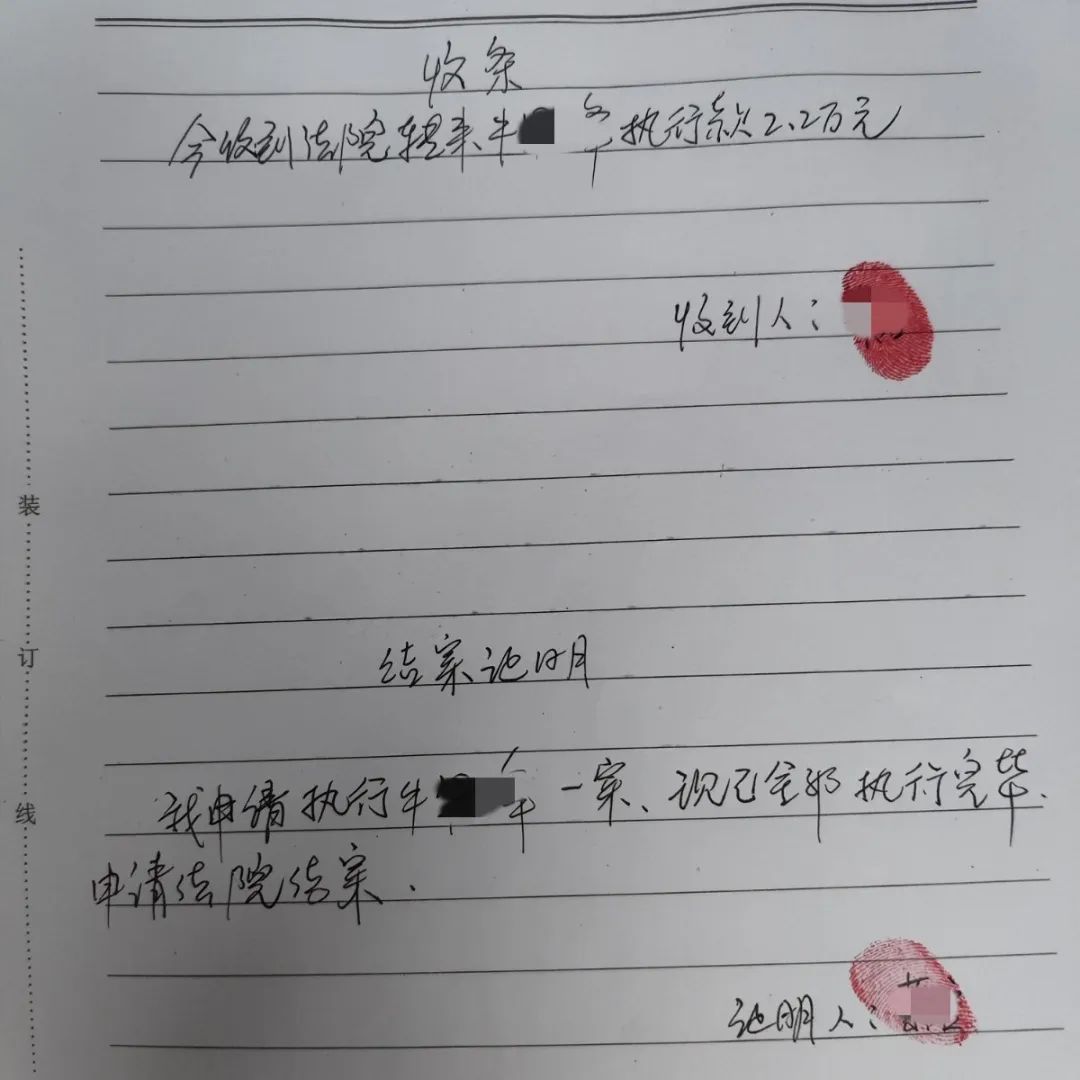 收条
今收到法院转来牛 执行款2.2万元
收到人：
结案证明
我申请执行牛 一案、现已全部执行完毕.
申请法院结案.
证明人：
装
订
线